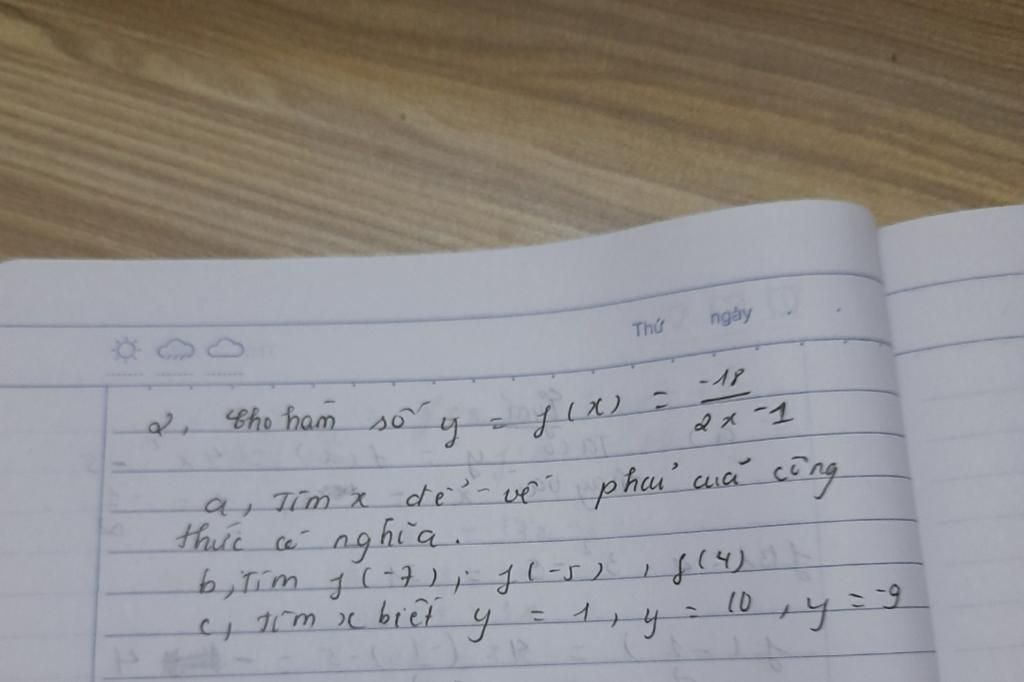 Thứ ngày
2, Cho hàm số y = f(x) = -18 / 2x -1
a, Tìm x để vế phải của công
thức có nghĩa.
b, Tìm f(-7); f(-5), f(4)
c, Tìm x biết y = 1, y = 10, y = -9